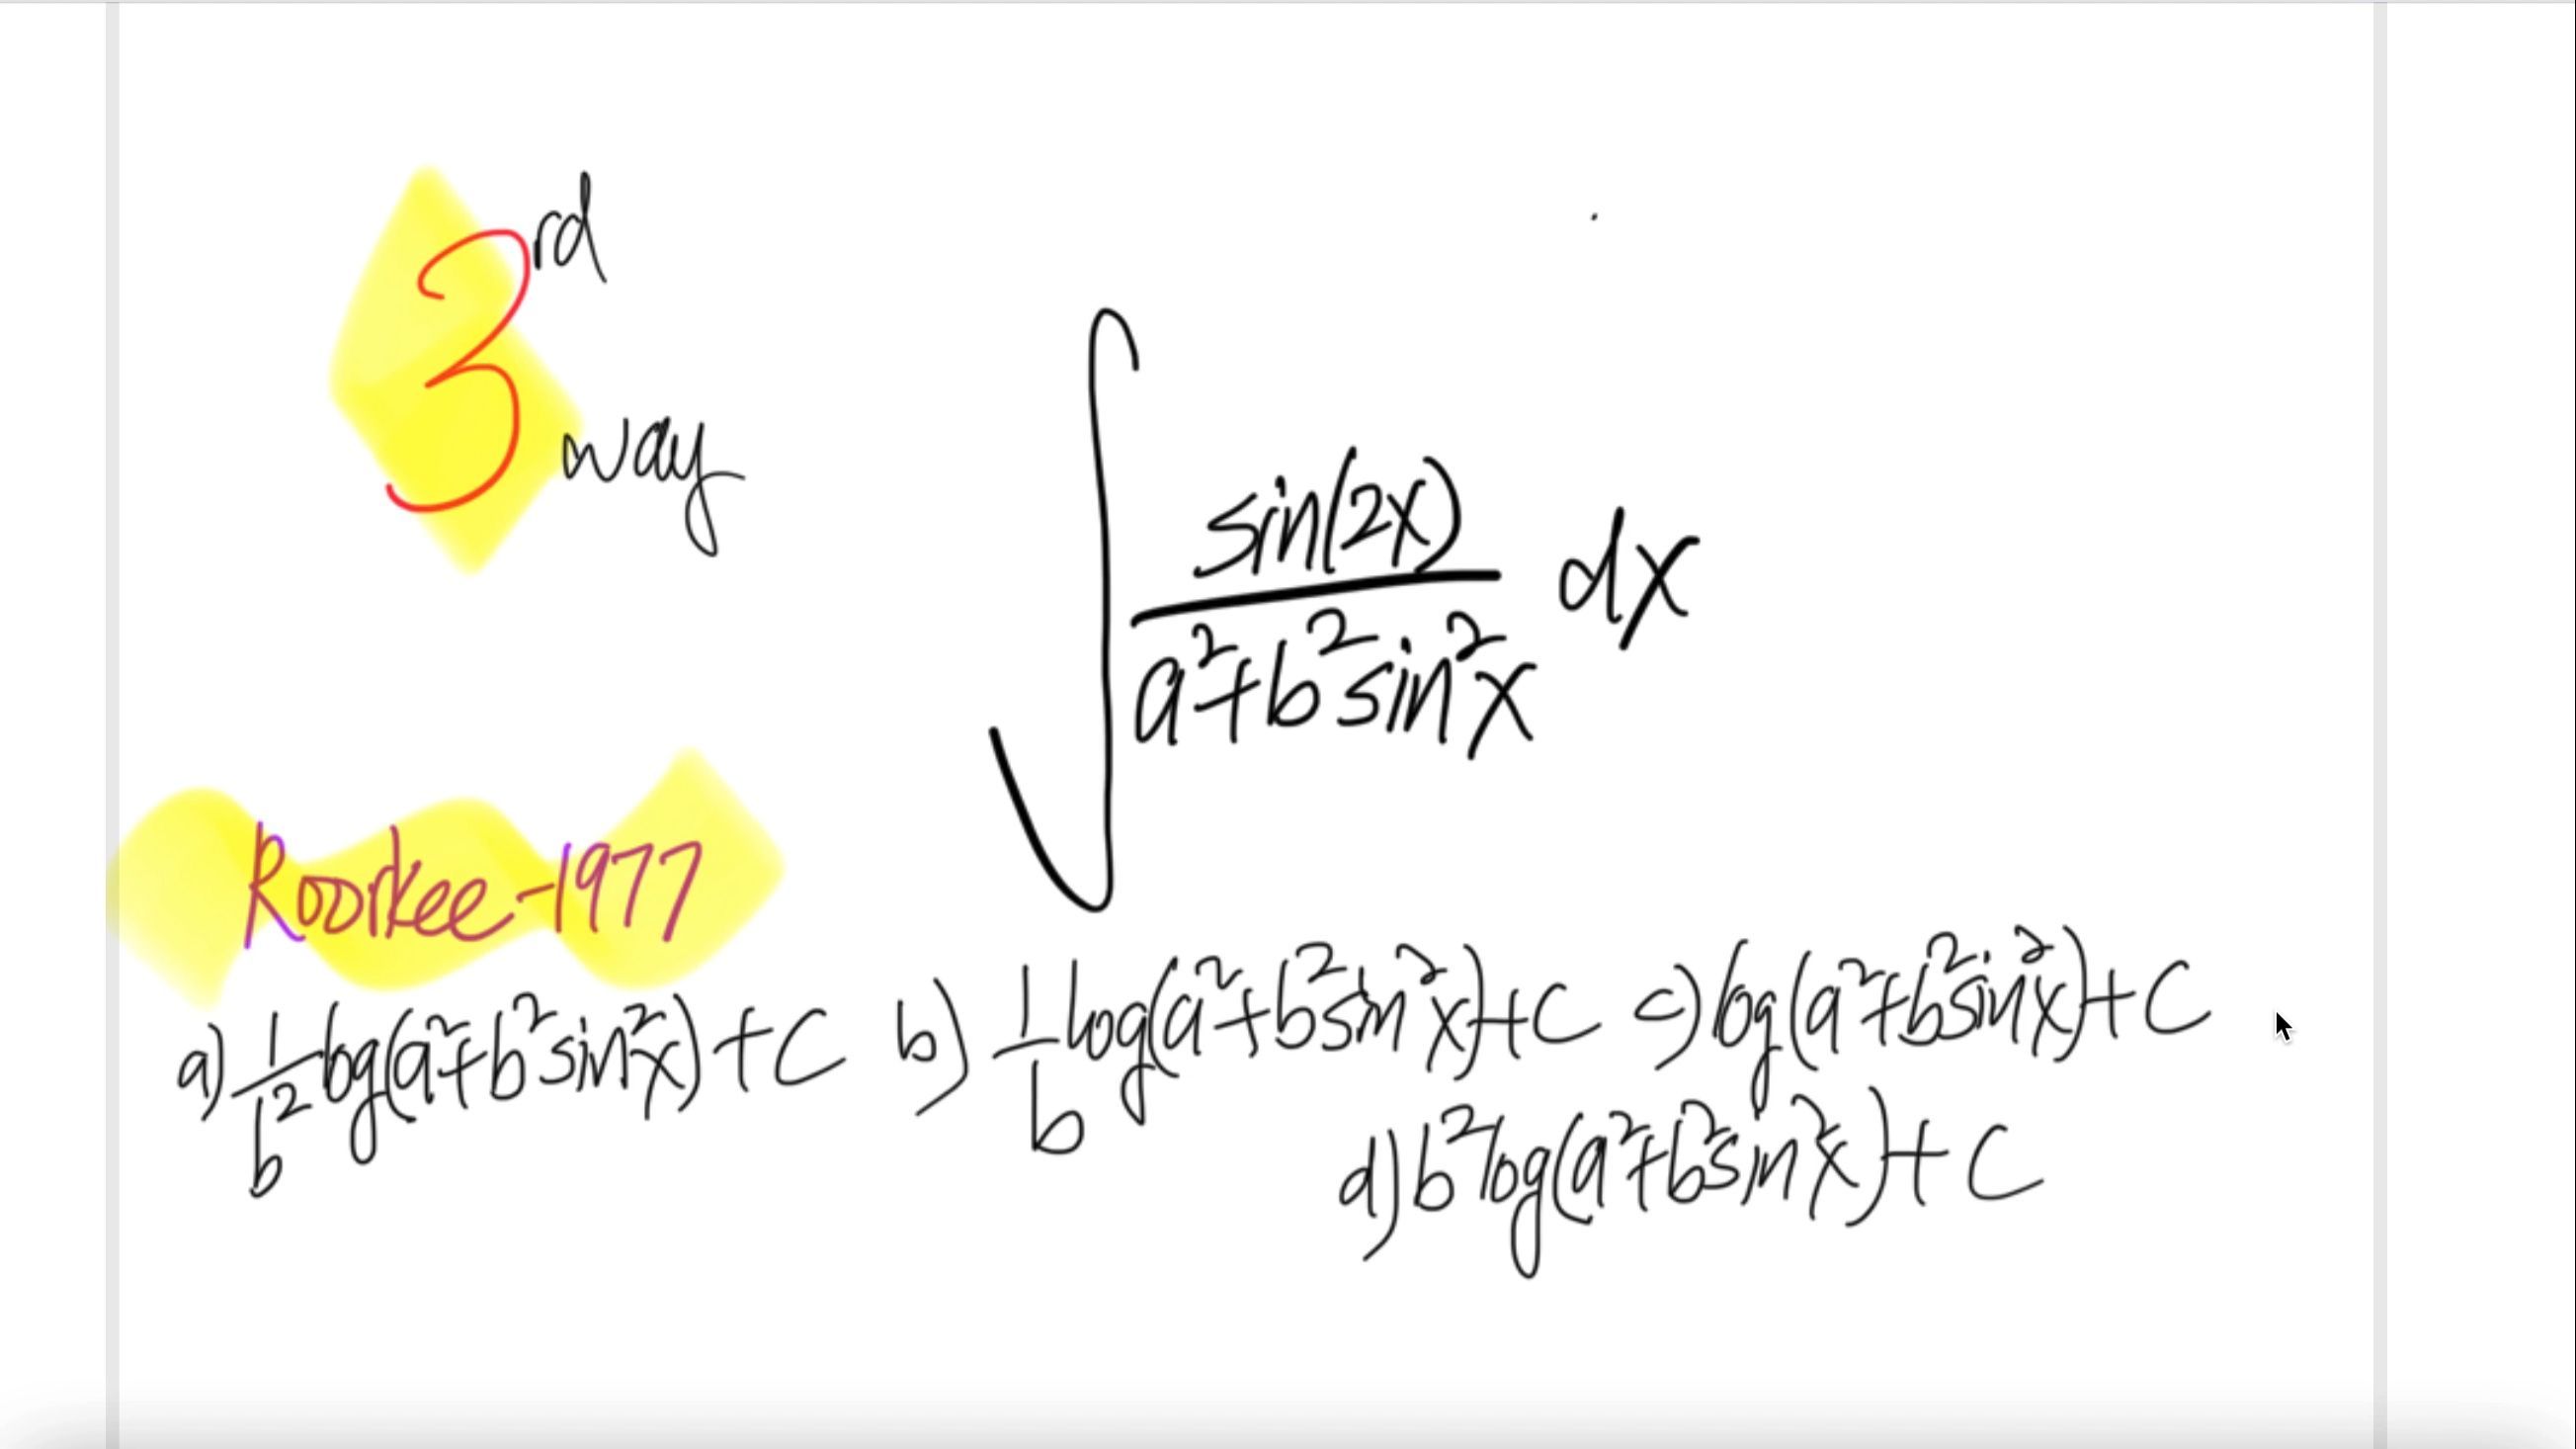 3rd way
∫ sin(2x)/(a²+b²sin²x) dx
Roorkee-1977
a) 1/b² log(a²+b²sin²x)+C b) 1/b log(a²+b²sin²x)+C c) log(a²+b²sin²x)+C
d) b²log(a²+b²sin²x)+C